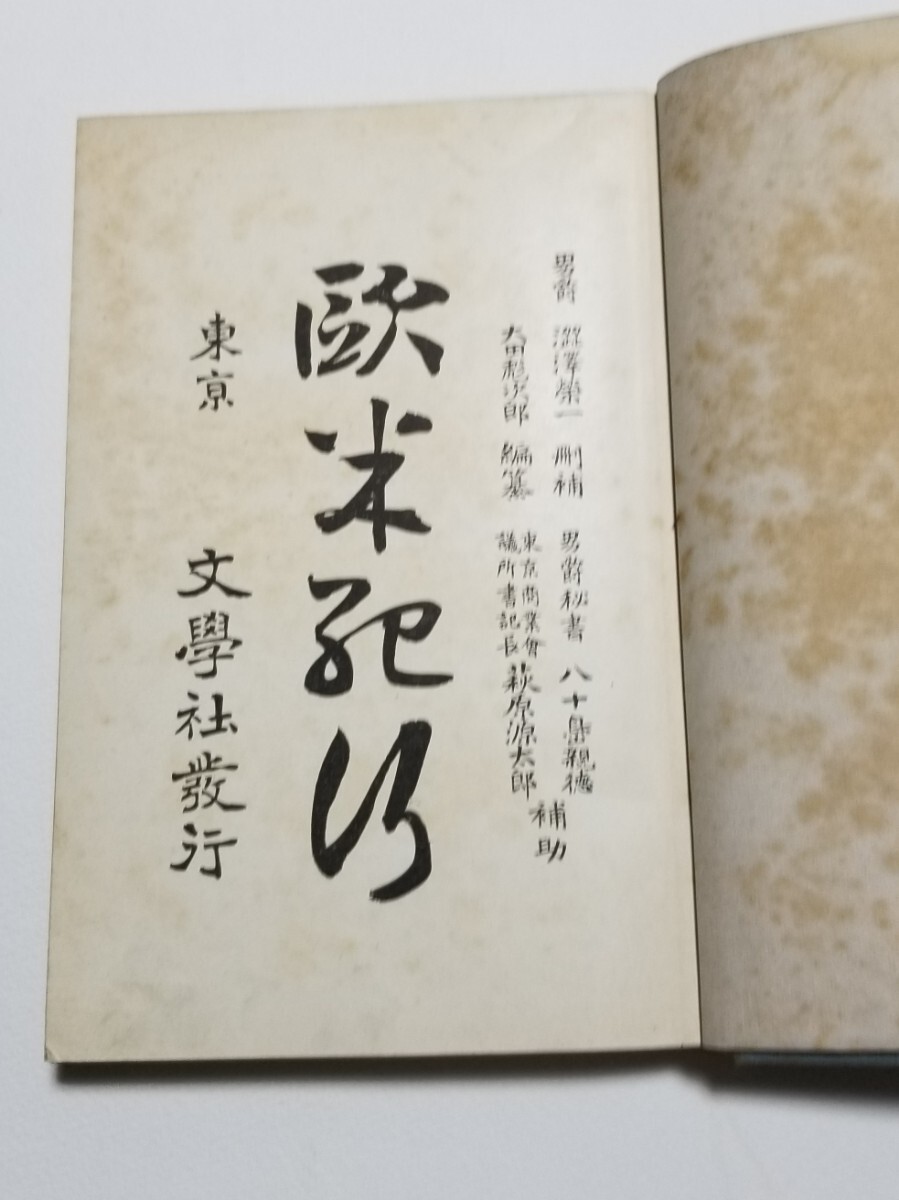 男爵 澁澤榮一 刪補
大田彪次郎 編纂
男爵秘書 八十島親德
東京商業會
議所書記長 萩原源太郎
補助
歐米紀行
東京 文學社發行